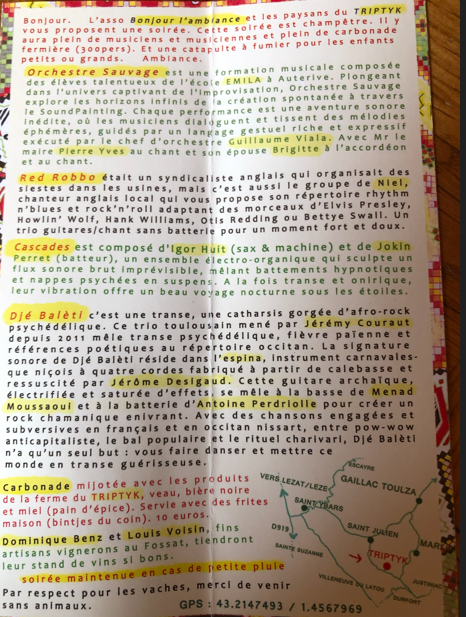 Bonjour. L'asso Bonjour l'ambiance et les paysans du TRIPTYK
vous proposent une soirée. Cette soirée est champêtre. Il y
aura plein de musiciens et musiciennes et plein de carbonade
fermière (300pers). Et une catapulte à fumier pour les enfants
petits ou grands. Ambiance.
Orchestre Sauvage est une formation musicale composée
des élèves talentueux de l'école EMILA à Auterive. Plongeant
dans l'univers captivant de l'improvisation, Orchestre Sauvage
explore les horizons infinis de la création spontanée à travers
le SoundPainting. Chaque performance est une aventure sonore
inédite, où les musiciens dialoguent et tissent des mélodies
éphémères, guidés par un langage gestuel riche et expressif
exécuté par le chef d'orchestre Guillaume Viala. Avec Mr le
maire Pierre Yves au chant et son épouse Brigitte à l'accordéon
et au chant.
Red Robbo était un syndicaliste anglais qui organisait des
siestes dans les usines, mais c'est aussi le groupe de Niel,
chanteur anglais local qui vous propose son répertoire rhythm
n'blues et rock'n'roll adaptant des morceaux d'Elvis Presley,
Howlin' Wolf, Hank Williams, Otis Redding ou Bettye Swall. Un
trio guitares/chant sans batterie pour un moment fort et doux.
Cascades est composé d'Igor Huit (sax & machine) et de Jokin
Perret (batteur), un ensemble électro-organique qui sculpte un
flux sonore brut imprévisible, mêlant battements hypnotiques
et nappes psychées en suspens. A la fois transe et onirique,
leur vibration offre un beau voyage nocturne sous les étoiles.
Djé Balèti c'est une transe, une catharsis gorgée d'afro-rock
psychédélique. Ce trio toulousain mené par Jérémy Couraut
depuis 2011 mêle transe psychédélique, fièvre païenne et
références poétiques au répertoire occitan. La signature
sonore de Djé Balèti réside dans l'espina, instrument carnavales-
que niçois à quatre cordes fabriqué à partir de calebasse et
ressuscité par Jérôme Desigaud. Cette guitare archaïque,
électrifiée et saturée d'effets, se mêle à la basse de Menad
Moussaoui et à la batterie d'Antoine Perdriolle pour créer un
rock chamanique enivrant. Avec des chansons engagées et
subversives en français et en occitan nissart, entre pow-wow
anticapitaliste, le bal populaire et le rituel charivari, Djé Balèti
n'a qu'un seul but : vous faire danser et mettre ce
monde en transe guérisseuse.
Carbonade mijotée avec les produits
de la ferme du TRIPTYK, veau, bière noire
et miel (pain d'épice). Servie avec des frites
maison (bintjes du coin). 10 euros.
Dominique Benz et Louis Voisin, fins
artisans vignerons au Fossat, tiendront
leur stand de vins si bons.
soirée maintenue en cas de petite pluie
Par respect pour les vaches, merci de venir
sans animaux.
ESCAYRE
VERS LEZAT/LEZE
GAILLAC TOULZA
SAINT YBARS
D919
SAINTE SUZANNE
SAINT JULIEN
TRIPTYK
VILLENEUVE DU LATOU
DURFORT
GPS : 43.2147493 / 1.4567969